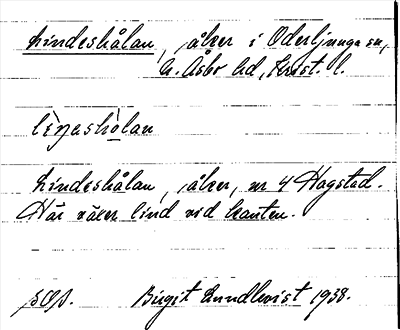 Lindeshålan, åker i Oderljunga sn,
N. Åsbo hd, Krist. l.
Lindeshålan, åker, nr 4 Hagstad.
Här växer lind vid kanten.
Birgit Lundkvist 1938.